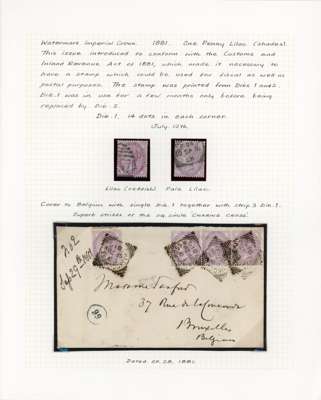 Watermark Imperial Crown. 1881. One Penny Lilac (shades).
This issue introduced to conform with the Customs and
Inland Revenue Act of 1881, which made it necessary to
have a stamp which could be used for fiscal as well as
postal purposes. The stamp was printed from Dies 1 and 2.
Die.1 was in use for a few months only before being
replaced by Die 2.
Die.1. 14 dots in each corner.
July 12th.
Lilac (reddish) Pale Lilac.
Cover to Belgium with single Die.1 together with strip 3 Die.1.
Superb strikes of the sq circle
Sep 29th 1881
Madame
37 Rue de
Bruxelles
Belgium
Dated 28. 1881.